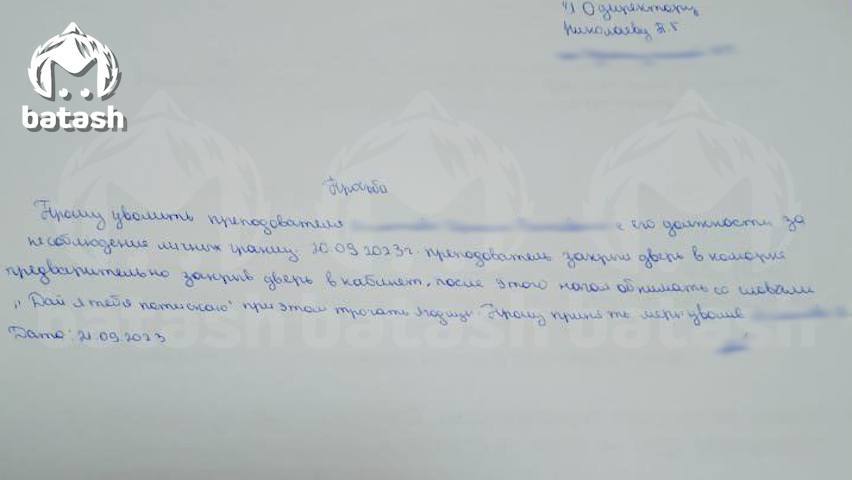 И О директору
Николаеву П. Г
batash
Просьба
Прошу уволить преподователя с его должности за
несоблюдение личных границ. 20.09.2023г. преподователь закрыл дверь в коморке
предварительно закрыв дверь в кабинет, после этого начал обнимать со словами
"Дай я тебя потискаю" при этом трогать ягодицы. Прошу принять меры уволив
Дата: 21.09.2023
batash batash batash